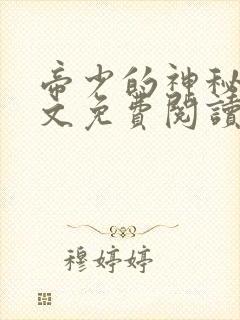 帝少的神秘
文免費閱讀
穆婷婷